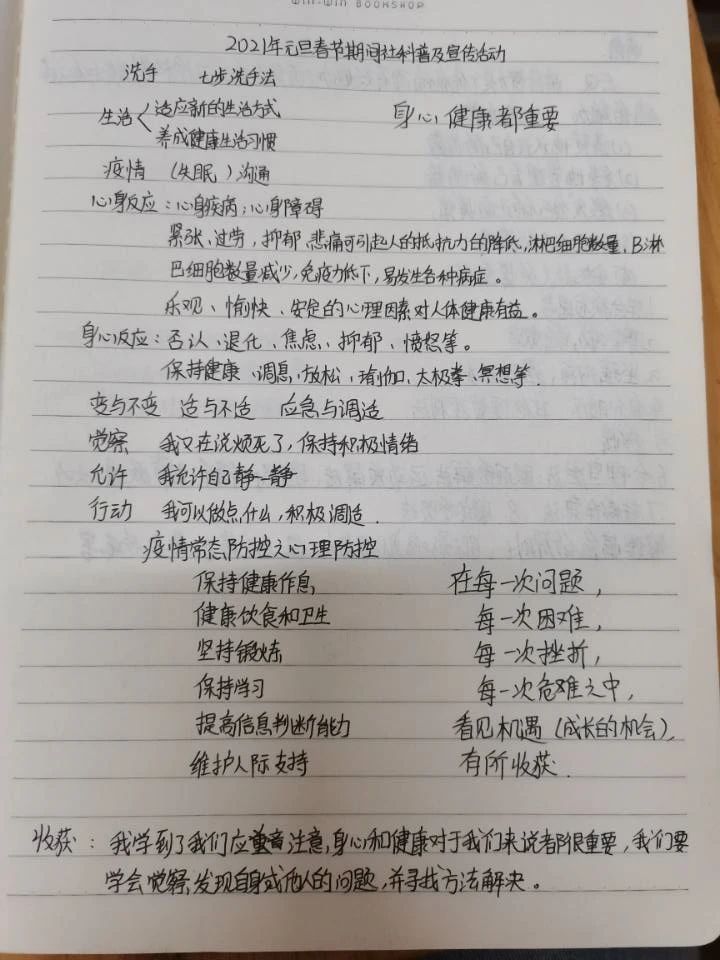 WIN-WIN BOOKSHOP
2021年元旦春节期间社科普及宣传活动
洗手 七步洗手法
生活 适应新的生活方式
养成健康生活习惯
身心健康都重要
疫情 (失眠)沟通
心身反应:心身疾病;心身障碍
紧张、过劳,抑郁、悲痛可引起人的抵抗力的降低,淋巴细胞数量、B淋
巴细胞数量减少,免疫力低下,易发生各种病症。
乐观、愉快、安定的心理因素对人体健康有益。
身心反应:否认、退化、焦虑、抑郁、愤怒等。
保持健康、调息、放松、瑜伽、太极拳、冥想等.
变与不变 适与不适 应急与调适
觉察 我又在说烦死了,保持积极情绪
允许 我允许自己静一静
行动 我可以做点什么,积极调适.
疫情常态防控之心理防控
保持健康作息
健康饮食和卫生
坚持锻炼
保持学习
提高信息判断能力
维护人际支持
在每一次问题,
每一次困难,
每一次挫折,
每一次危难之中,
看见机遇(成长的机会),
有所收获.
收获:我学到了我们应注意,身心和健康对于我们来说都很重要,我们要
学会觉察,发现自身或他人的问题,并寻找方法解决。